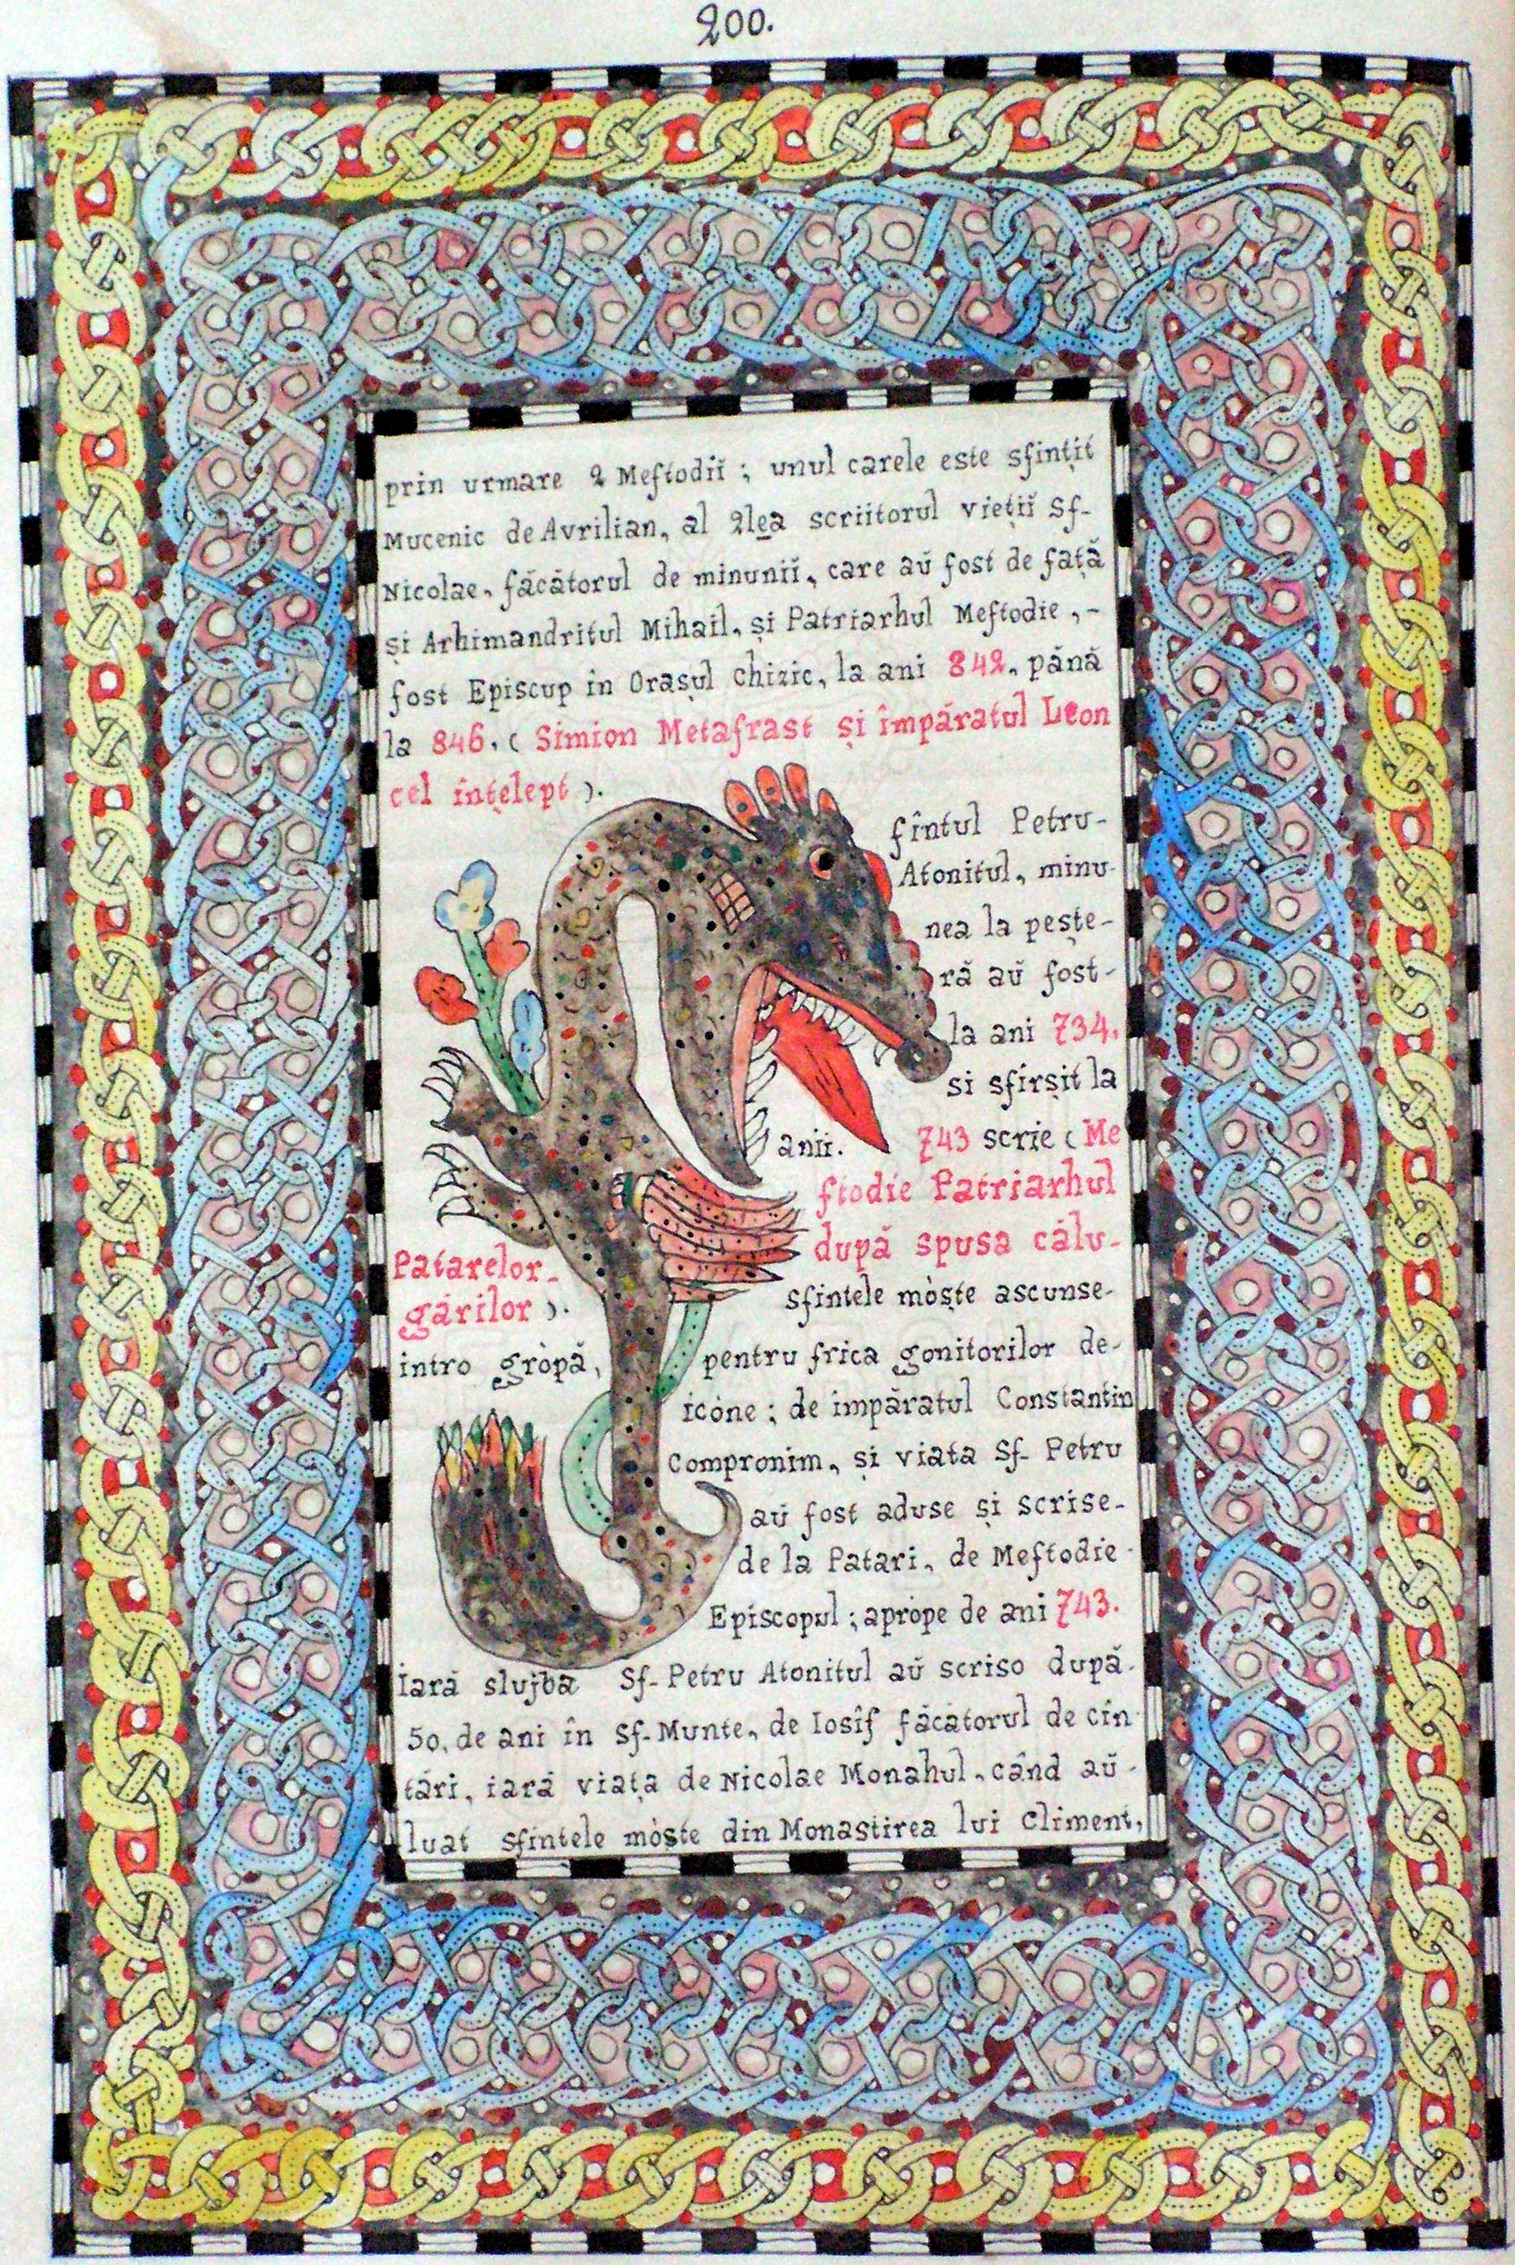 200.
prin urmare 2 Meftodiĭ ; unul carele este sfințit
Mucenic de Avrilian, al 2lea scriitorul viețiĭ Sf-
Nicolae, făcătorul de minuniĭ, care aŭ fost de față
și Arhimandritul Mihail, și Patriarhul Meftodie ,-
fost Episcup în Orașul Chizic, la ani 842, până
la 846, ( Simion Metafrast și împăratul Leon
cel înțelept ).
fîntul Petru-
Atonitul, minu
nea la pește-
ră aŭ fost-
la ani 734,
si sfîrșit la
anii. 743 scrie ( Me
ftodie Patriarhul
Patarelor- după spusa călu-
gărilor ). Sfintele mòște ascunse-
intro gròpă, pentru frica gonitorilor de-
icòne ; de impăratul Constantin
Compronim, și viata Sf- Petru
aŭ fost aduse și scrise-
de la Patari, de Meftodie-
Episcopul ; apròpe de ani 743.
Iară slujba Sf- Petru Atonitul aŭ scriso după-
50, de ani în Sf- Munte, de Iosif făcătorul de cîn
tări, iară viața de Nicolae Monahul, când aŭ-
luat sfintele mòște din Monastirea lui Climent,